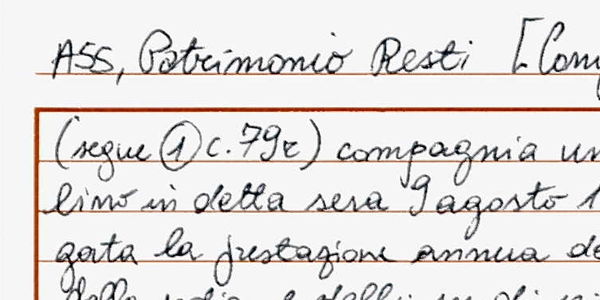 ASS, Patrimonio Resti [Com
(segue ① c. 79r) compagnia un
lino in detta sera 9 agosto 1
gata la prestazione annua de